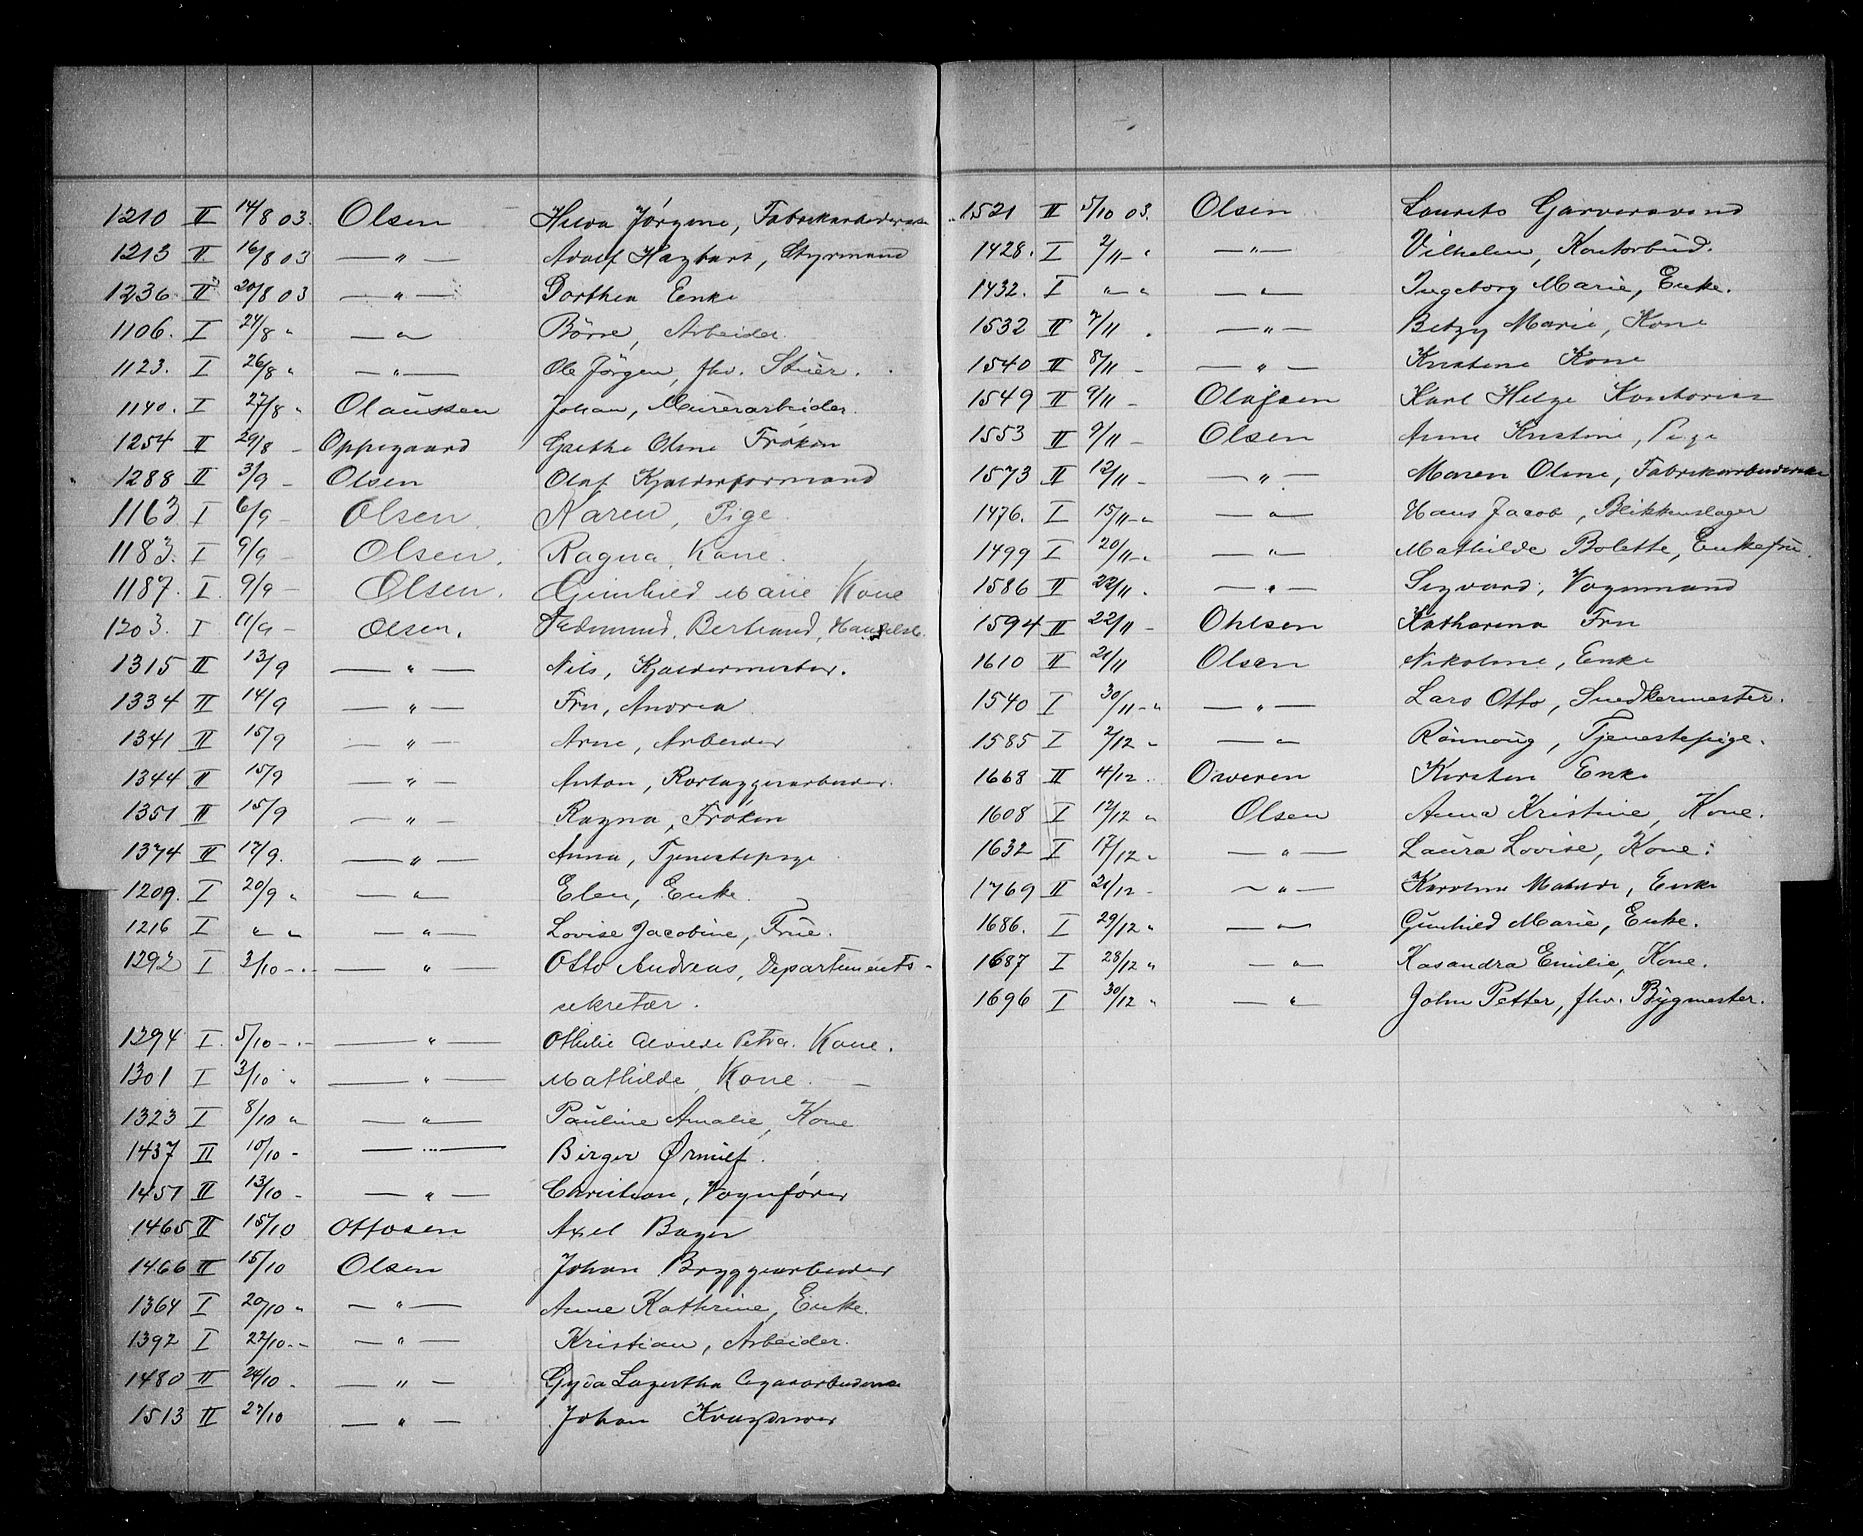 1210 II 14/8 03. Olsen Hilda Jörgine, Fabrikarbeiderske
1213 II 16/8 03 — " — Adolf Hagbart, Styrmand
1236 II 20/8 03 — " — Dorthea Enke
1106. I 24/8 " — " — Börre, Arbeider
1123. I 26/8 " — " — Ole Jörgen, fhv. Stuer.
1140. I 27/8 " Olaussen Johan, Murerarbeider.
1254 II 29/8 - Oppegaard Grethe Oline Frøken
1288 II 3/9 - Olsen Olaf Kjælderformand
1163 I 6/9 - Olsen Karen, Pige
1183. I 9/9 - Olsen. Ragna, Kone.
1187. I. 9/9 - Olsen. Gunhild Marie Kone
1203. I 11/9 - Olsen. Edmund, Bertrand,
1315 II 13/9 — " — Nils, Kjældermester.
1334 II 14/9 — " — Fru, Andrea
1341 II 15/9 — " — Arne, Arbeider
1344 II 15/9 — " — Anton,
1351 II 15/9 — " — Ragna, Frøken
1374 II 17/9. — " — Anna, Tjenestepige
1209. I 20/9 " — " Elen, Enke.
1216 I " " — " — Lovise Jacobine, Frue.
1292 I 3/10 - - — " — Otto Andreas, Departements-
sekretær.
1294 I. 5/10 - - — " — Othilie Alvilde Petra. Kone.
1301 I 3/10 " — " — Mathilde, Kone. —
1323 I 8/10 " — " — Pauline Amalie, Kone
1437 II 10/10 - — " — Birger Ørnulf.
1451 II 13/10 - — " — Christian, Vognfører
1465 II 15/10 Ottosen Axel Bager
1466 II 15/10 Olsen Johan Bryggearbeider
1364 I 20/10 " — " — Anne Kathrine, Enke.
1392 I 22/10 - - — " — Kristian, Arbeider.
1480 II 24/10 - — " — Gyda Lagertha Cigararbeiderske
1513 II 27/10 — " — Johan
1521 II 5/10 03. Olsen Laurits Garversvend
1428. I 2/11 - " — " — Vilhelm, Kontorbud.
1432. I " " — " — Ingeborg Marie, Enke.
1532 II 7/11 . — " — Betzy Marie, Kone
1540 II 8/11 - — " — Kristine Kone
1549 II 9/11 - Olafsen Karl Helge Kontorist
1553 II 9/11 - Olsen Anne Kristine, Pige
1573 II 12/11 - — " — Maren Oline, Fabrikarbeiderske
1476. I 15/11 - " — " — Hans Jacob, Blikkenslager
1499 I 20/11 - " — " — Mathilde Bolette, Enkefru.
1586 II 22/11 . — " — Sigvard, Vognmand
1594 II 22/11 - Ohlsen Katharina Fru
1610 II 21/11 Olsen Nikoline, Enke
1540 I 30/11 - " — " — Lars Otto, Snedkermester.
1585 I 2/12 " — " Rönnoug, Tjenestepige.
1668 II 4/12 . Oweren Kirsten Enke
1608 I 12/12 " Olsen Anna Kristine, Kone.
1632 I 17/12 " — " — Laura Lovise, Kone.
1769 II 21/12 - — " — Karoline Mathilde, Enke
1686. I 29/12 " — " — Gunhild Marie, Enke.
1687 I 28/12 " — " — Kasandra Emilie, Kone.
1696 I 30/12 " — " — John Petter, fhv. Bygmester.